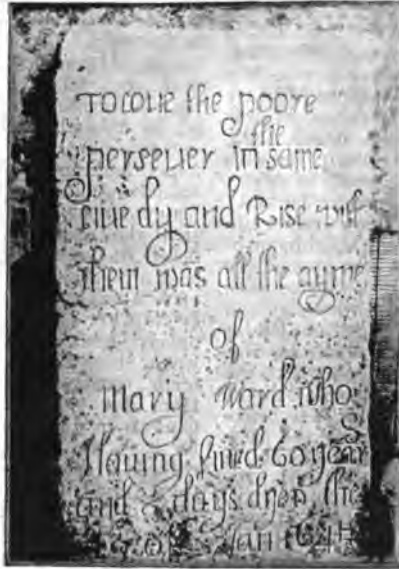 To loue the poore
the
perseuer in same
liue dy and Rise with
them was all the ayme
of
Mary Ward who
Hauing liued 60 years
and 8 days dyed the
of Jan